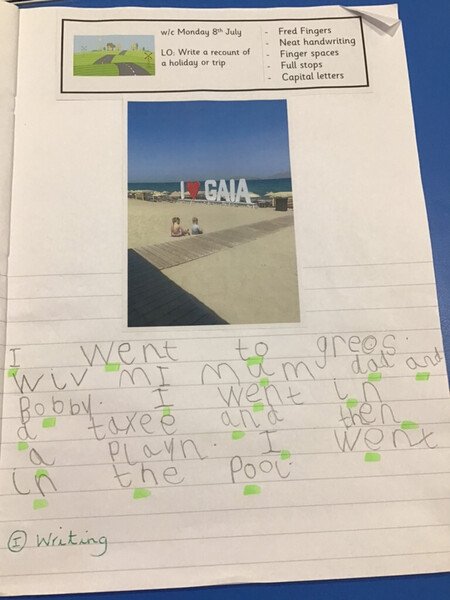 w/c Monday 8th July
LO: Write a recount
of a holiday or trip
- Fred Fingers
- Neat handwriting
- Finger spaces
- Full stops
- Capital letters
I ❤ GAIA
I went to greos.
wiv mI mum dad and
Bobby. I went in
a taxee and then
a playn. I went
in the pool.
I Writing